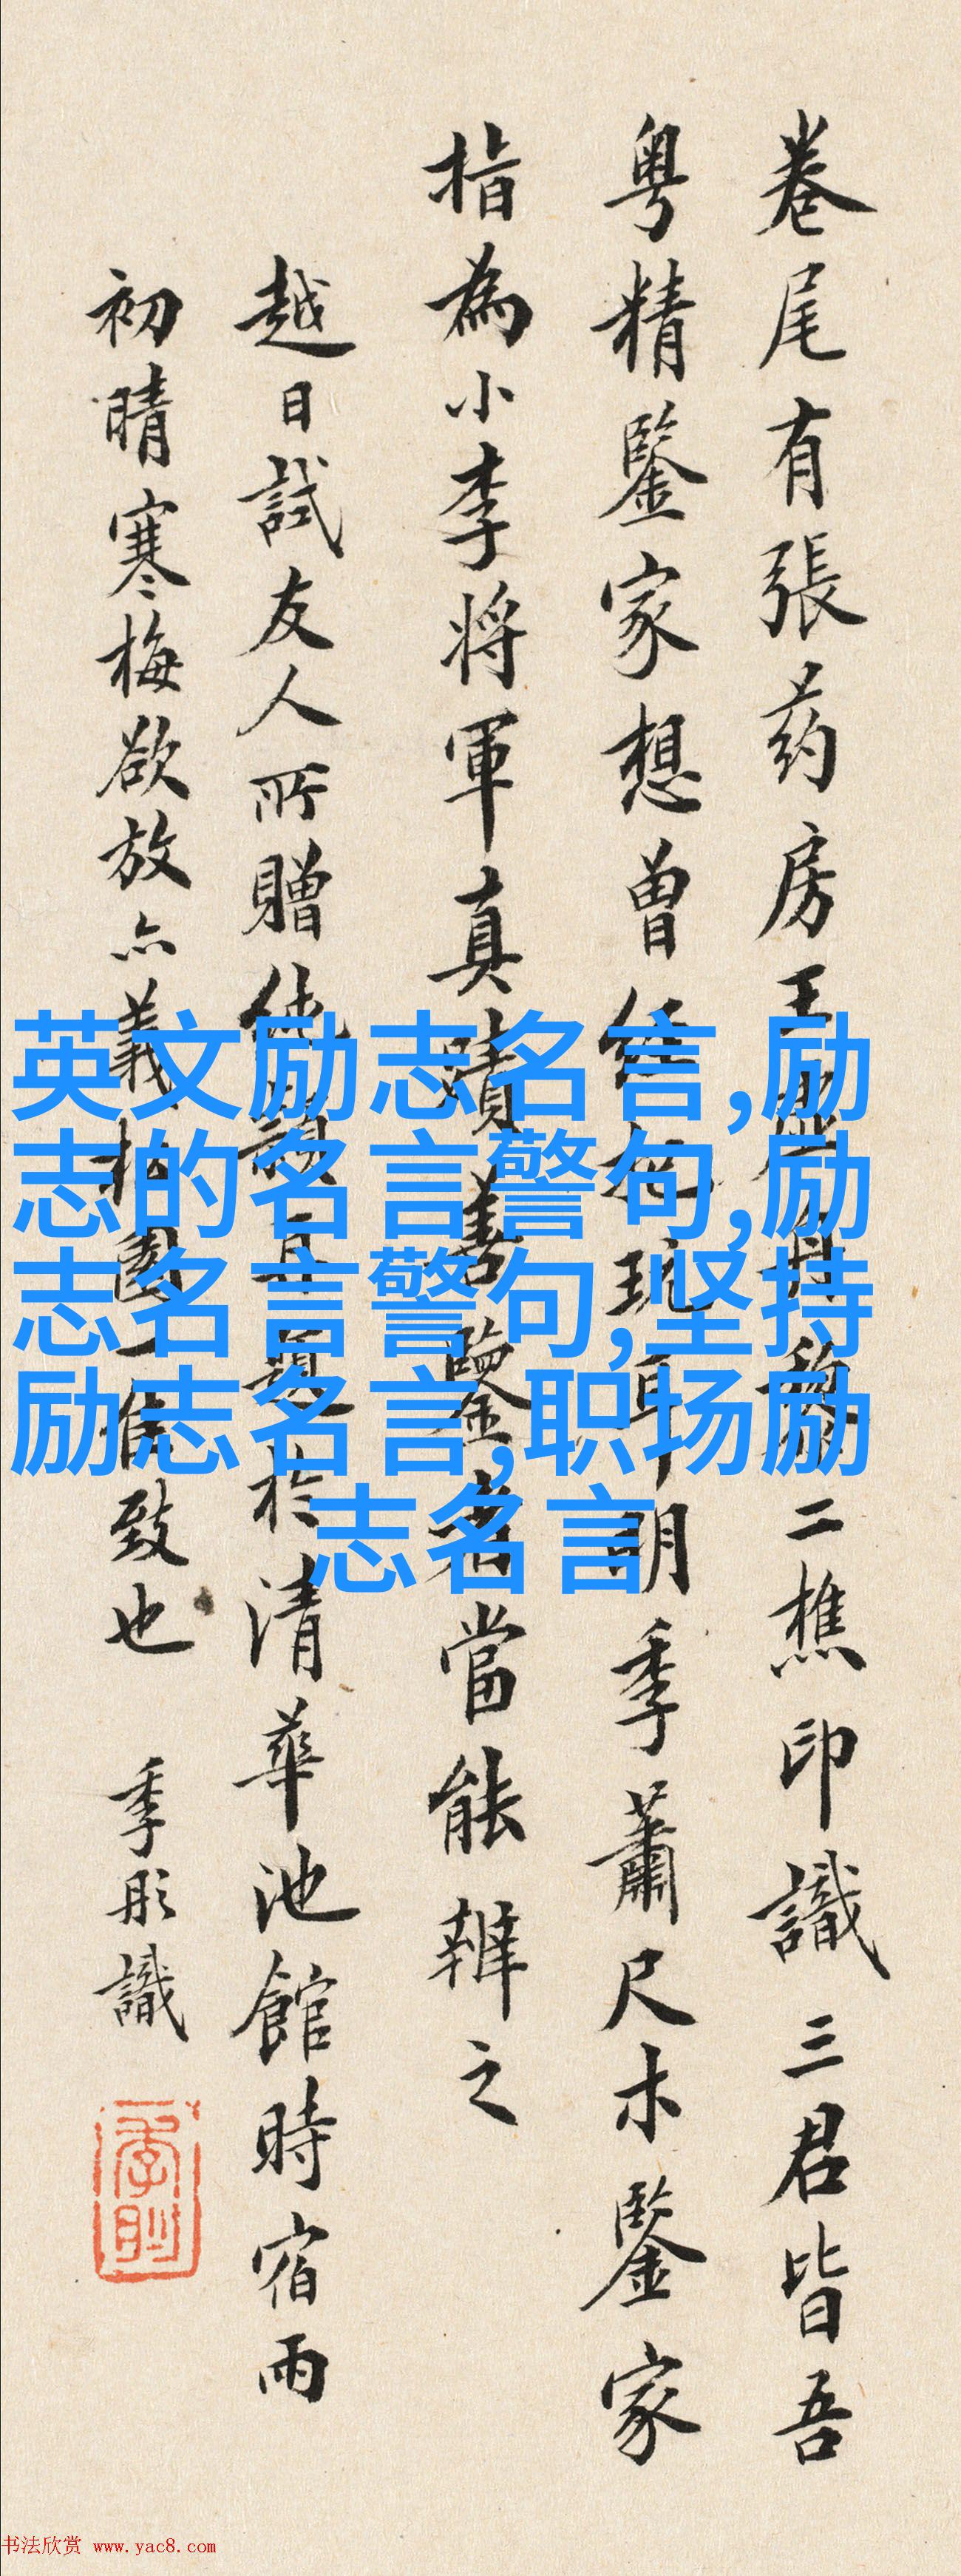 卷尾有張药房王黎二樵印識三君皆吾
粤精鑒家想曾經把玩耳明季蕭尺木鑒家
指為小李将軍真蹟善鑒者當能辨之
越日試友人所贈再題於清華池館時宿雨
初晴寒梅欲放亦園一佳致也 季彤識
英文励志名言,励
志的名言警句,励
志名言警句,坚持
励志名言,职场励
志名言
书法欣赏 www.yac8.com